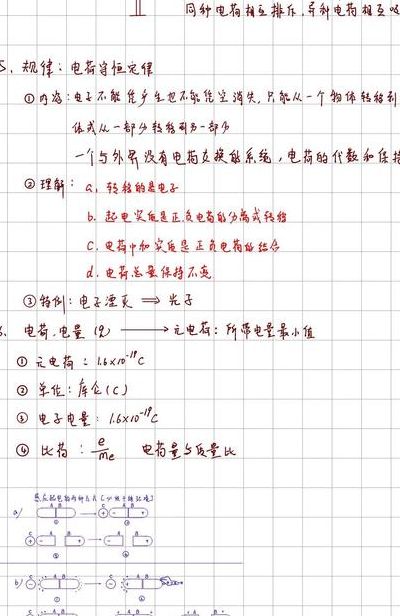 同种电荷相互排斥,异种电荷相互吸
5. 规律:电荷守恒定律
① 内容:电子不能凭产生也不能凭空消失,只能从一个物体转移到
体或从一部分转移到另一部分
一个与外界没有电荷交换的系统,电荷的代数和保持
② 理解: a. 转移的是电子
b. 起电实质是正负电荷的分离或转移
c. 电荷中和实质是正负电荷的结合
d. 电荷总量保持不变
③ 特例:电子湮灭 ⟹ 光子
电荷.电量 (q) ⟶ 元电荷:所带电量最小值
① 元电荷:1.6×10⁻¹⁹C
② 单位:库仑(C)
③ 电子电量:1.6×10⁻¹⁹C
④ 比荷: e/me 电荷量与质量比
a)
C A B C A B
⊕ − + ⊕ − +
b)
C A B C A B